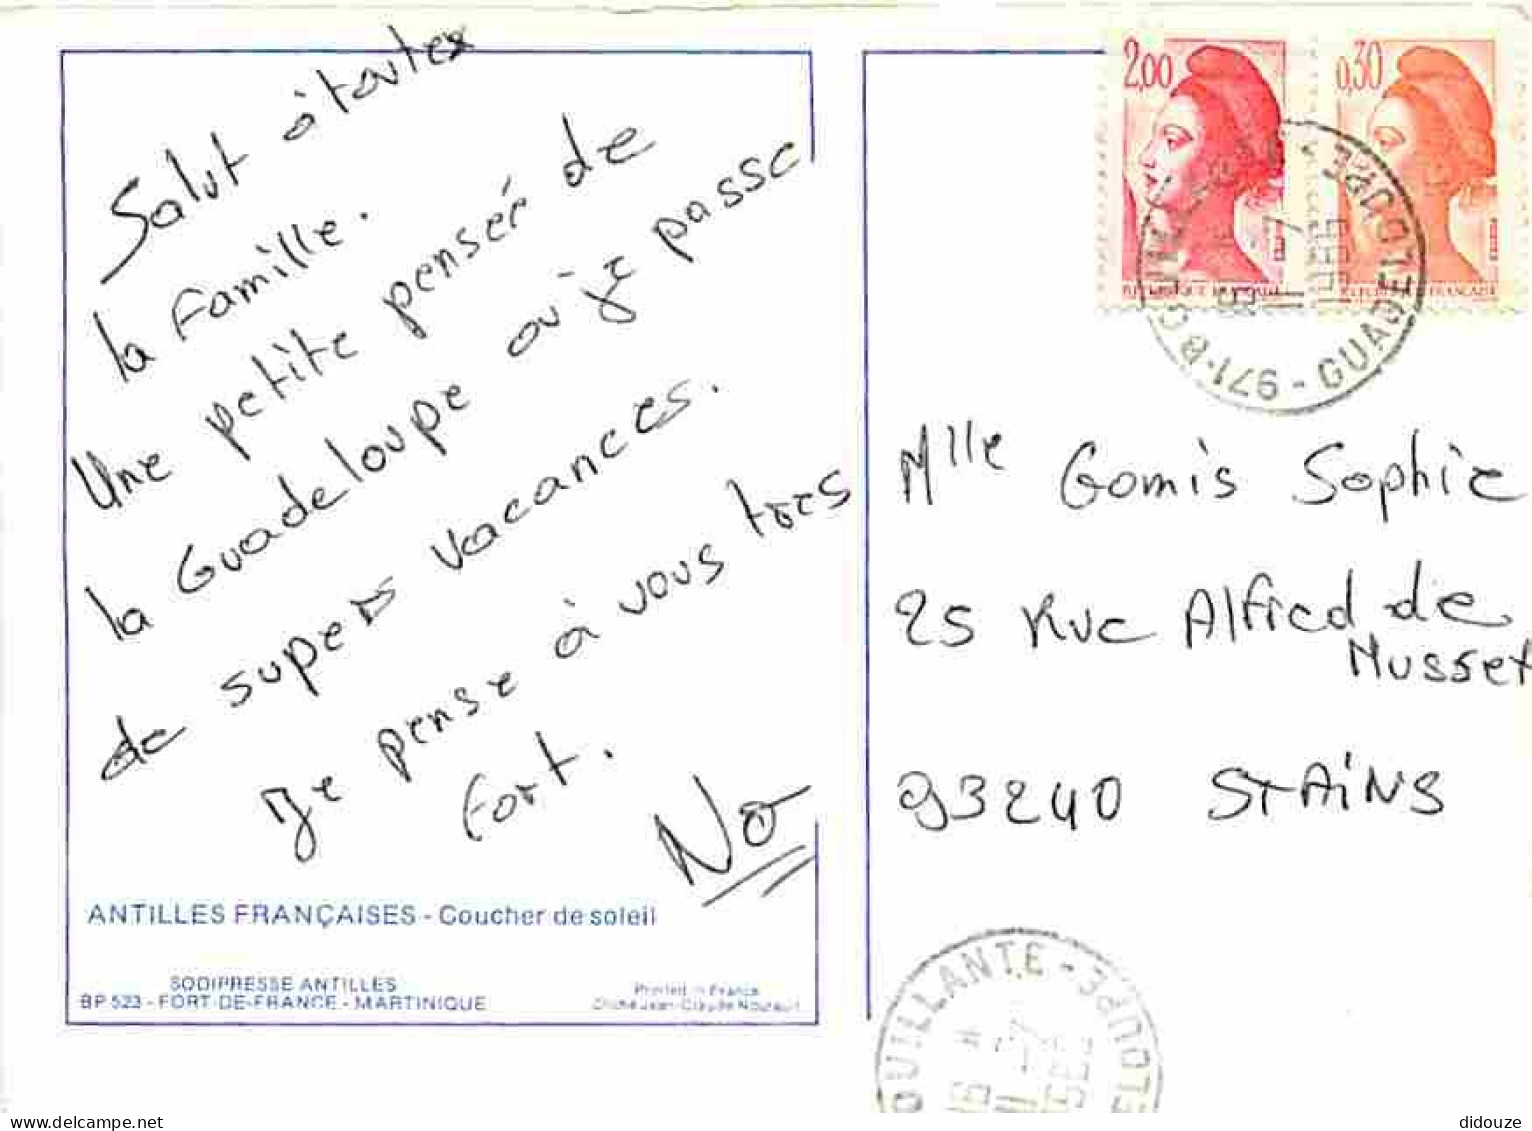 Salut à toutes
la Famille.
Une petite pensée de
la Guadeloupe où je passe
de supers vacances.
Je pense à vous tres
fort.
No
ANTILLES FRANÇAISES - Coucher de soleil
SODIPRESSE ANTILLES
BP 523 - FORT-DE-FRANCE - MARTINIQUE
Printed in France
Cliché Jean-Claude
2,00
0,30
RÉPUBLIQUE FRANÇAISE
FRANÇAISE
971 - GUADELOUPE
Mlle Gomis Sophie
25 Rue Alfred de
Musset
93240 STAiNS
BOUILLANTE - GUADELOUPE
delcampe.net
didouze